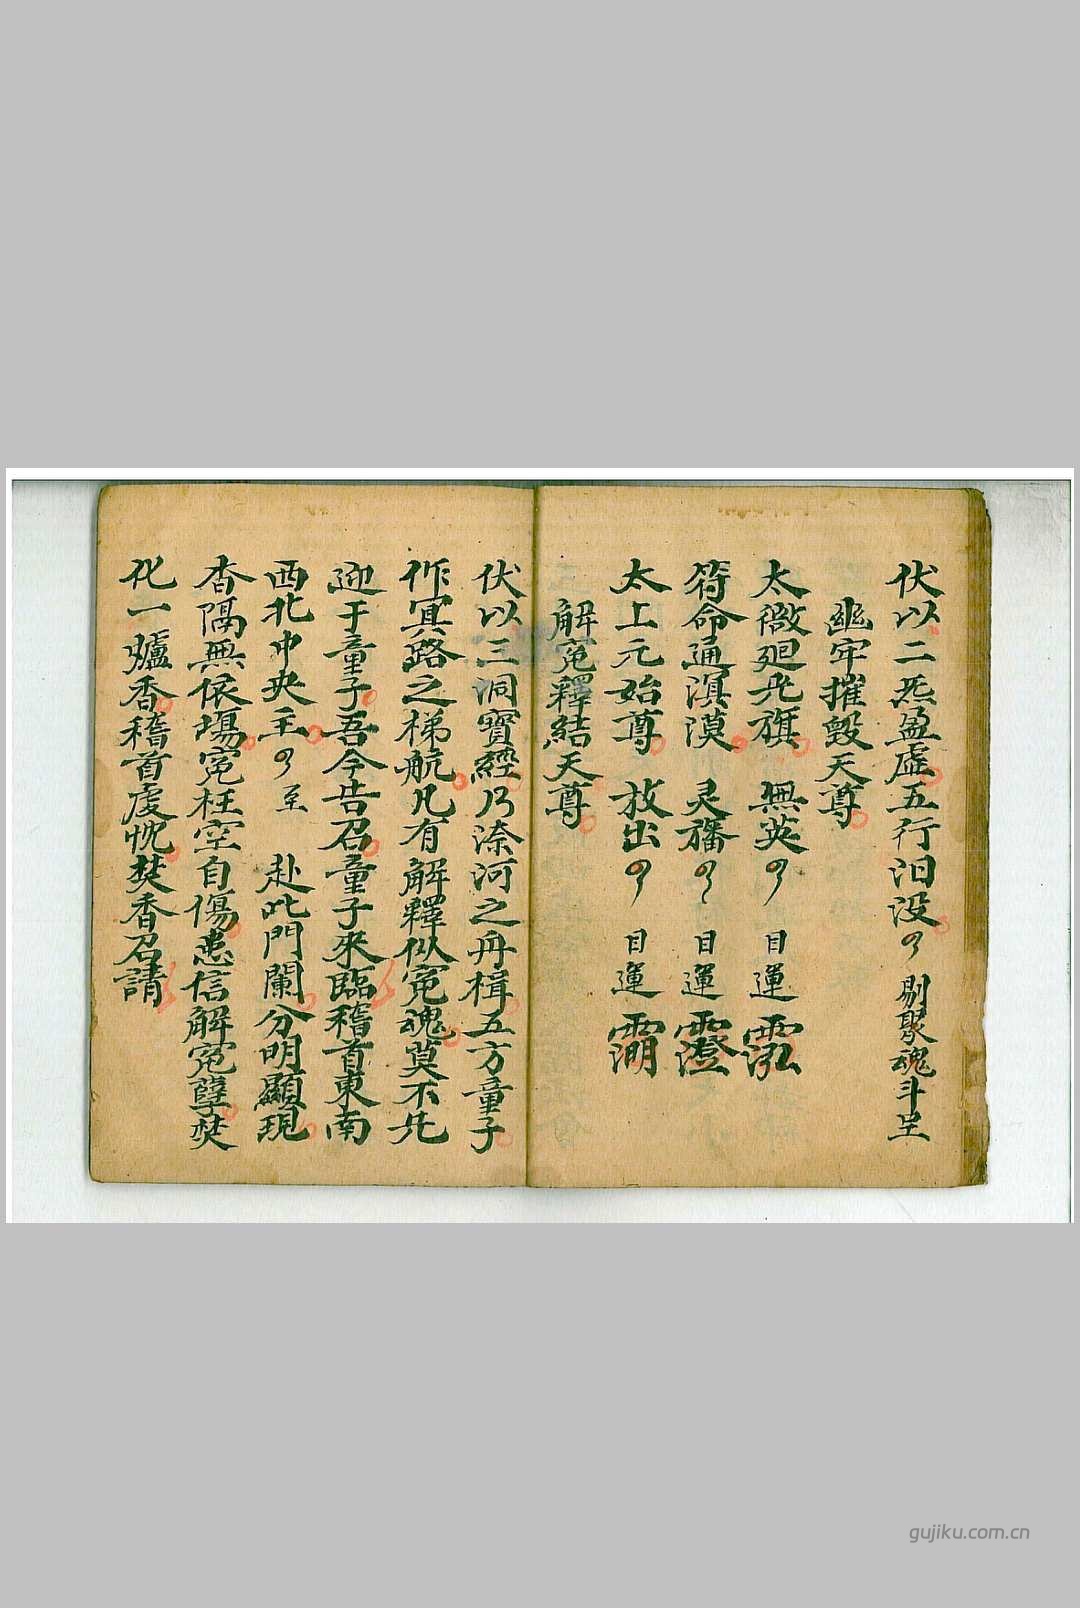 伏以二炁盈虚五行汨没 剔聚魂斗星
幽牢摧毀天尊
太微廻光旗 無英 目運
符命通溟漠 灵旛 目運
太上元始尊 放出 目運
解冤釋結天尊
伏以三洞寶經乃柰河之舟楫五方童子
作冥路之梯航凡有解釋似冤魂莫不先
迎于童子吾今告召童子來臨稽首東南
西北中央主 至 赴此門闌分明顯現
杳隔無依場冤枉空自傷惠信解冤孽焚
化一爐香稽首虔忱焚香召請
gujiku.com.cn